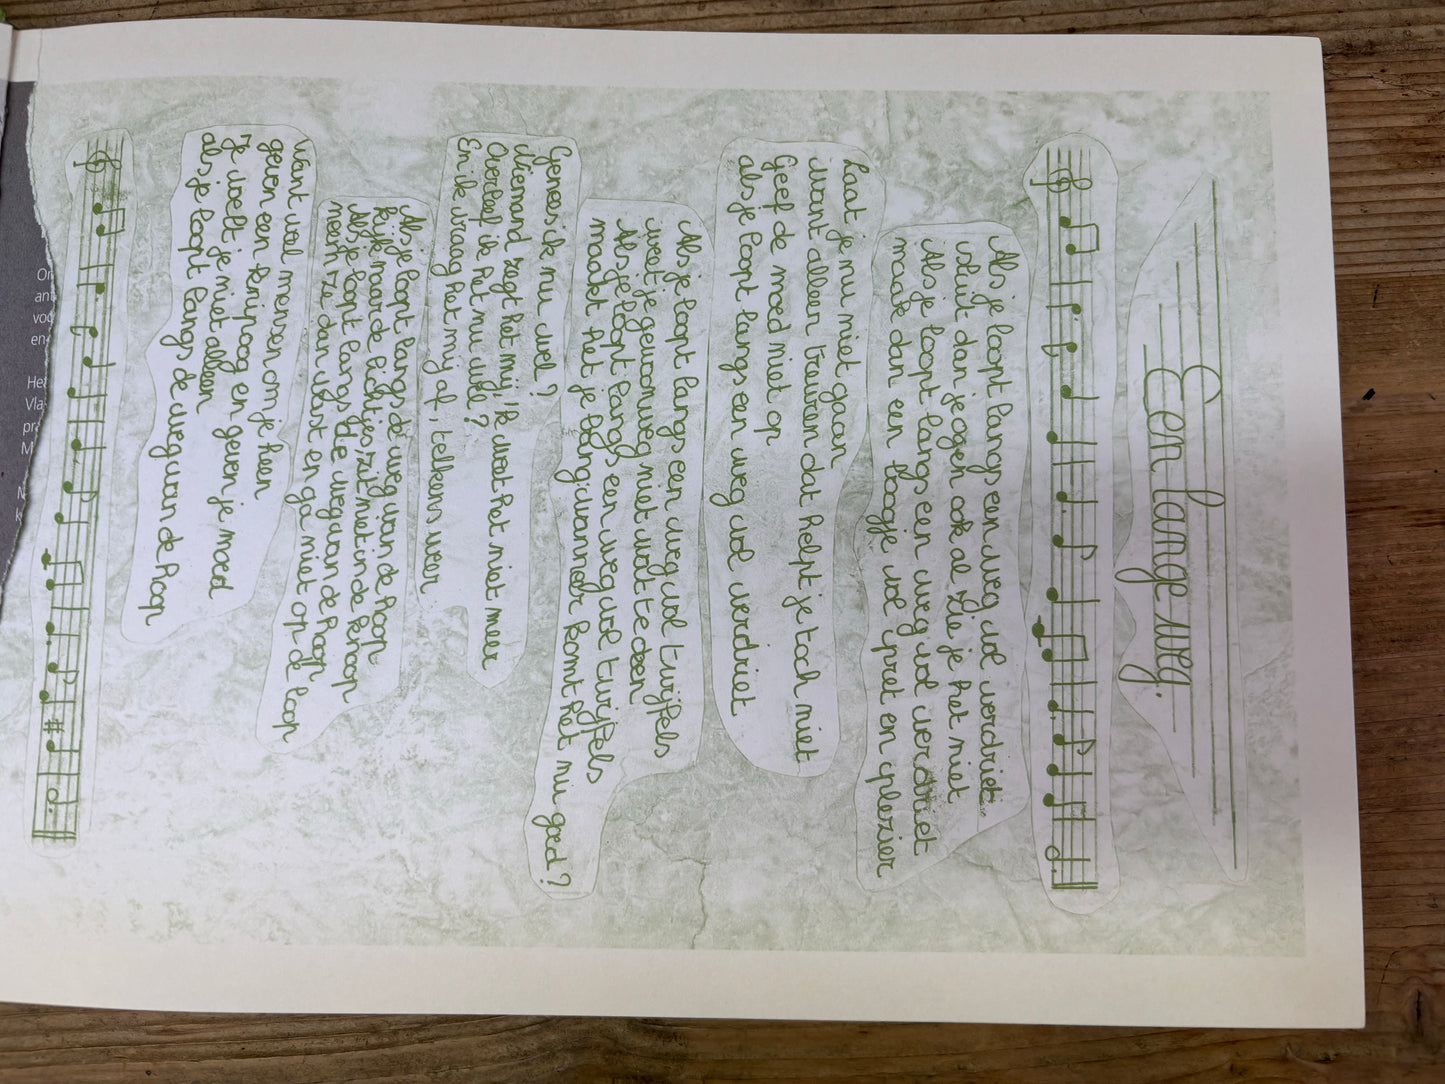 Een lange weg.
Als je loopt langs een weg vol verdriet
sluit dan je ogen ook al zie je het niet
Als je loopt langs een weg vol verdriet
maak dan een boogje vol pret en plezier
Laat je nu niet gaan
want alleen treuren dat helpt je toch niet
Geef de moed niet op
als je loopt langs een weg vol verdriet
Als je loopt langs een weg vol twijfels
weet je gewoonweg niet wat te doen
Als je loopt langs een weg vol twijfels
maakt het je bang wanneer komt het nu goed?
Genees ik nu wel?
Niemand zegt het mij, ik weet het niet meer
Overleef ik het nu wel?
En ik vraag het mij af telkens weer
Als je loopt langs de weg van de hoop
kijk naar de lichtjes, zit niet in de knoop
Als je loopt langs de weg van de hoop
neem ze dan vast en ga niet op de loop
Want veel mensen om je heen
geven een knipoog en geven je moed
Je voelt je niet alleen
als je loopt langs de weg van de hoop
On
ant
voo
en
Het
Vla
pra
M
N
k